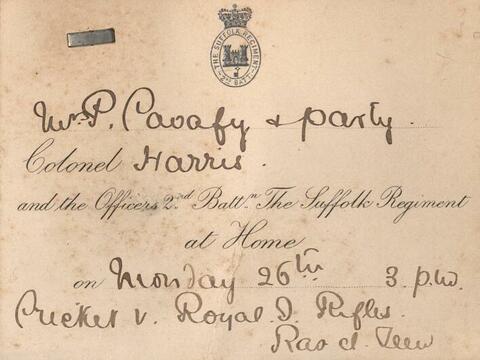 THE SUFFOLK REGIMENT
2ND BATT.
Mrs P. Cavafy & party.
Colonel Harris.
and the Officers 2nd Battn. The Suffolk Regiment
at Home
on Monday 26th 3 p.m.
Cricket v. Royal I. Rifles.
Ras el Teen